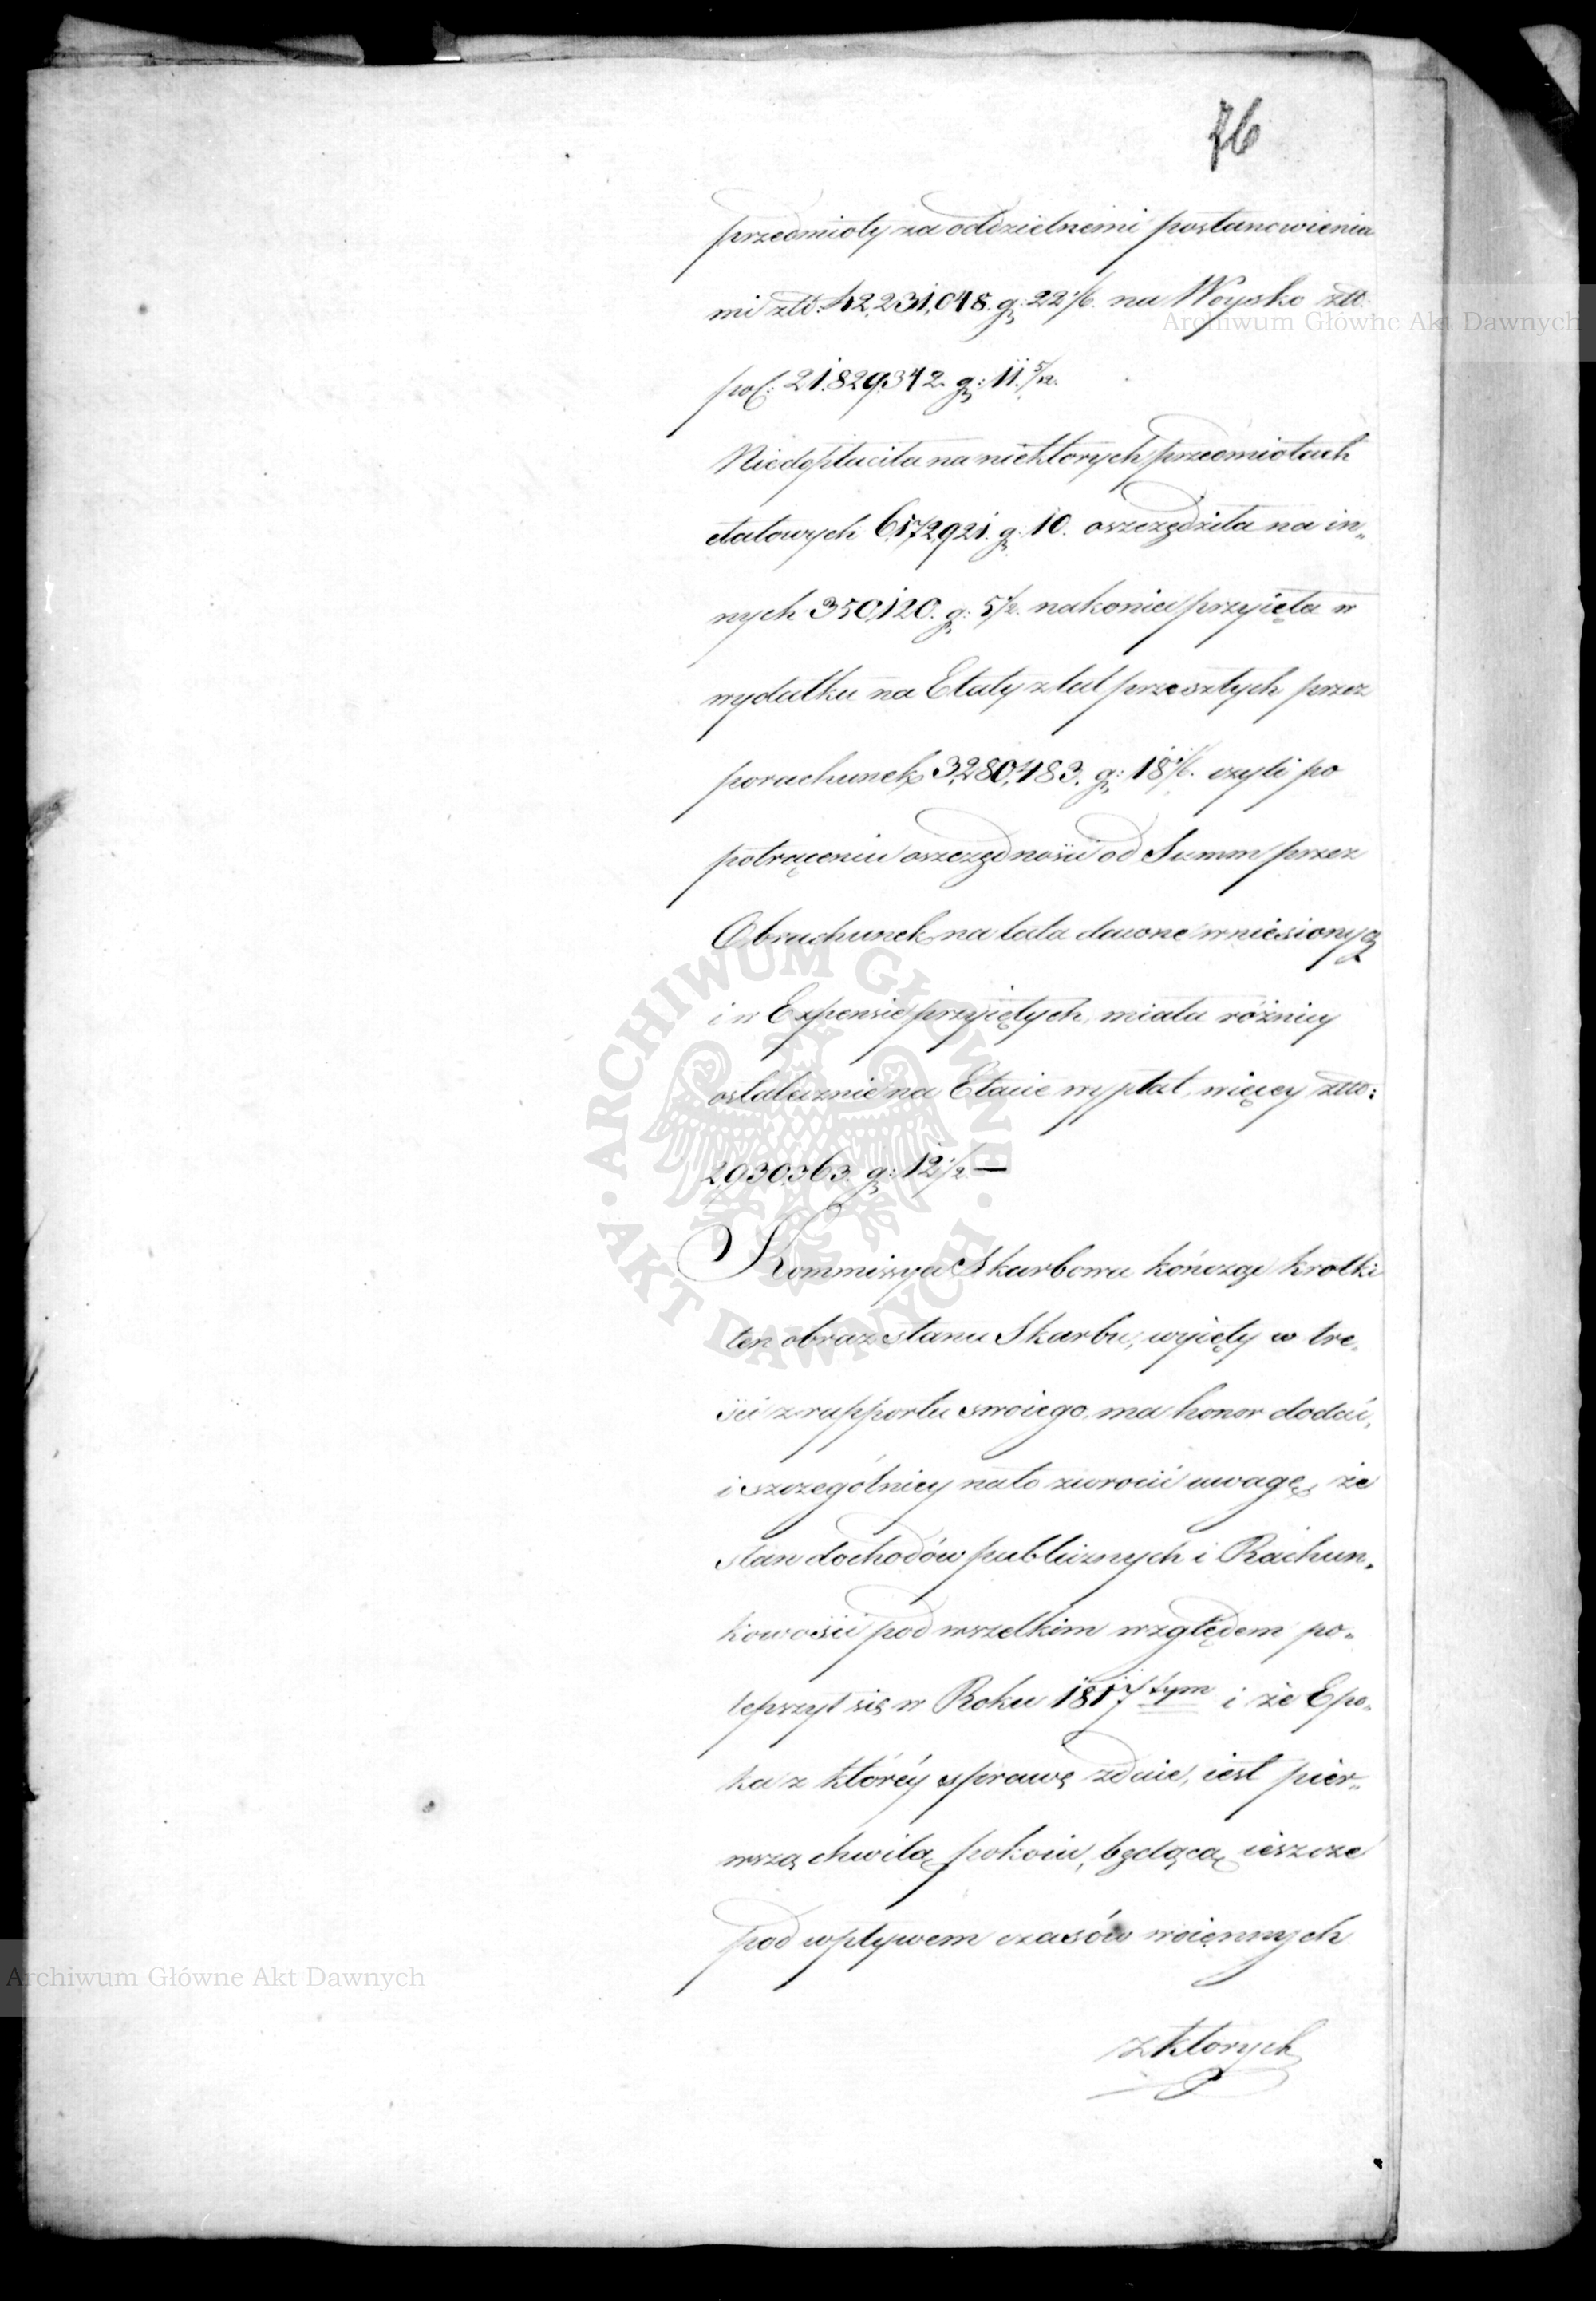 76
przedmioty za oddzielnemi postanowienia
mi złł: 42,231,048. g: 22 1/6. na Woysko złł:
pol: 21.829,342. g: 11. 5/12.
Niedopłaciła na niektorych przedmiotach
etatowych 6,172,921. g: 10. oszczędziła na in„
nych 350,120. g: 5 1/2. nakoniec przyięła w
wydatku na Etaty z lat przeszłych przez
porachunek 3,280,483. g: 18 1/6. czyli po
potrąceniu oszczędności od Summ przez
Obrachunek na lata dawne wniesionych
i w Expensie przyiętych, miała różnicy
ostatecznie na Etacie wypłat, więcey złło:
2,930,363. g: 12 1/2 —
Kommissya Skarbowa kończąc krotki
ten obraz stanu Skarbu, wyięty w tre„
ści z rapportu swoiego, ma honor dodać,
i szczególniey na to zwrocić uwagę, że
stan dochodów publicznych i Rachun„
kowości pod wszelkim względem po„
lepszył się w Roku 1817 tym i że Epo„
ka z któréy sprawę zdaie, iest pier„
wszą chwilą pokoiu, będącą ieszcze
pod wpływem czasów woiennych
z ktorych
Archiwum Główne Akt Dawnych
Archiwum Główne Akt Dawnych
ARCHIWUM GŁÓWNE · AKT DAWNYCH ·